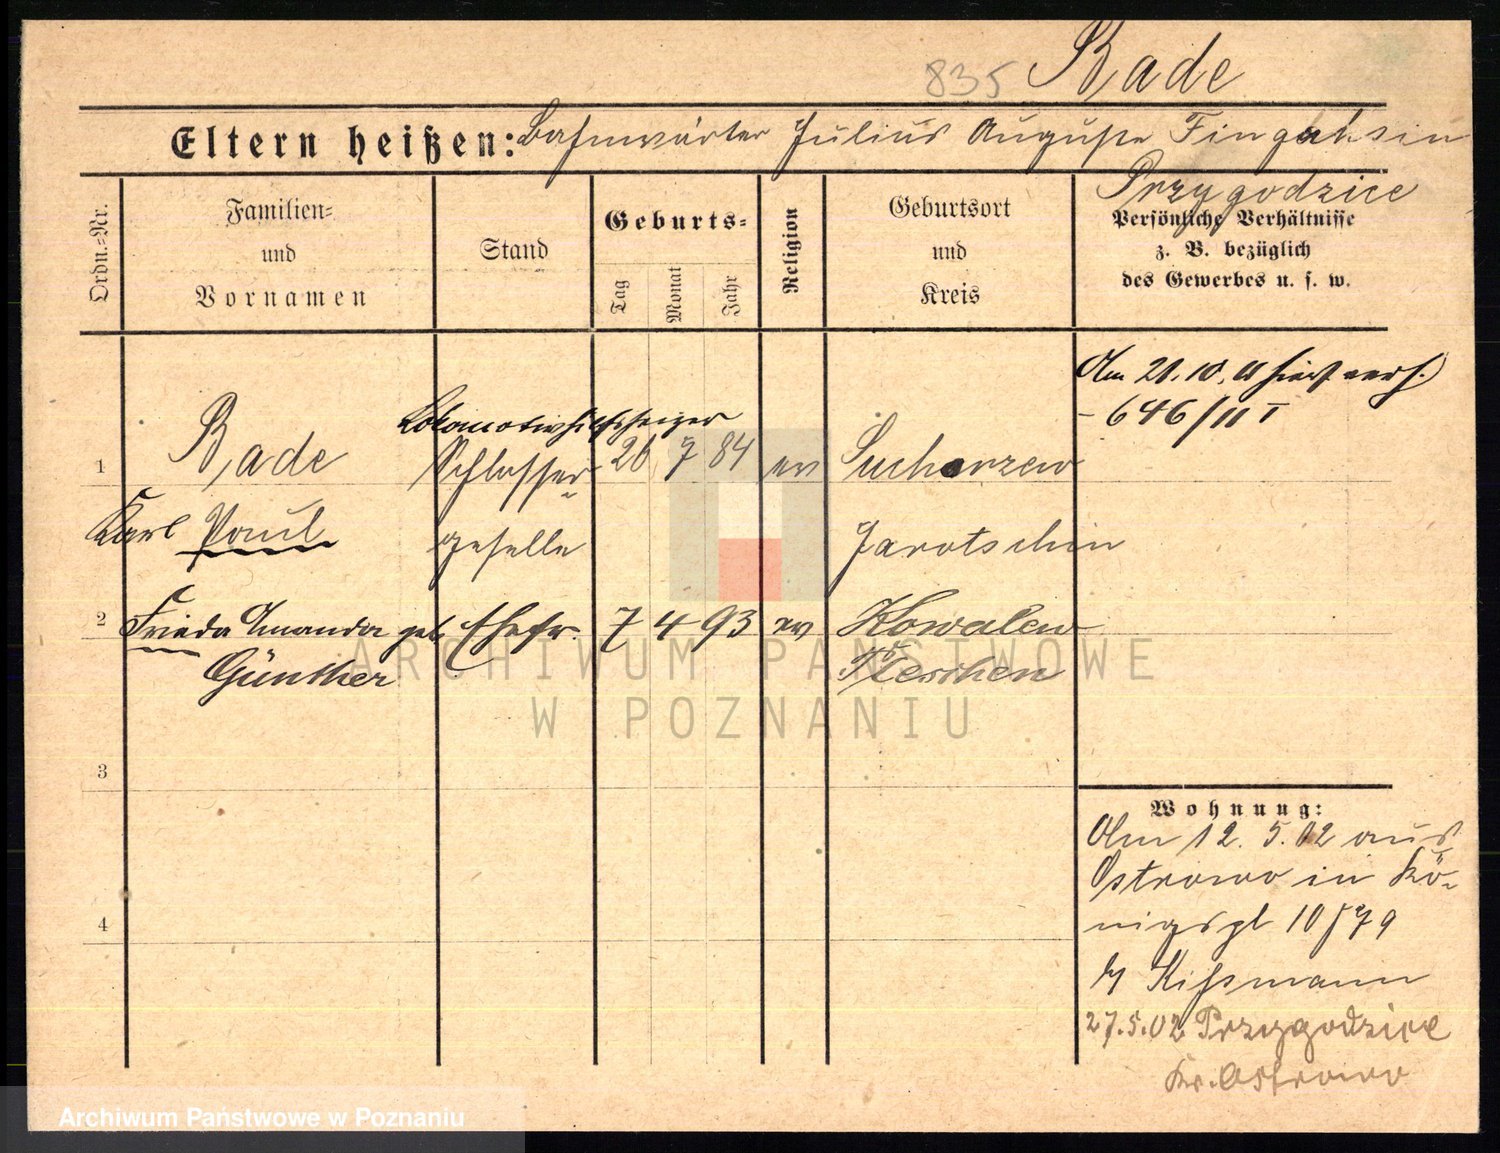 835 Bade
Eltern heißen: Bahnwärter Julius Auguste in
Przygodzice
Ordn.-Nr.
Familien-
und
Vornamen
Stand
Geburts-
Tag
Monat
Jahr
Religion
Geburtsort
und
Kreis
Persönliche Verhältnisse
z. B. bezüglich
des Gewerbes u. s. w.
Am 21.10.11 hier verh.
- 646/11 I
Lokomotivhilfsheizer
1 Bade Schlosser 26 7 84 ev Sucharzew
Karl Paul geselle Jarotschin
2 Frieda Amanda geb. Ehefr. 7 4 93 ev Kowalew
Günther Pleschen
3
4
Wohnung:
Am 12.5.02 aus
Ostrowo in Kö-
nigspl 10
b/ Kißmann
27.5.02 Przygodzice
Kr. Ostrowo
ARCHIWUM PAŃSTWOWE
W POZNANIU
Archiwum Państwowe w Poznaniu